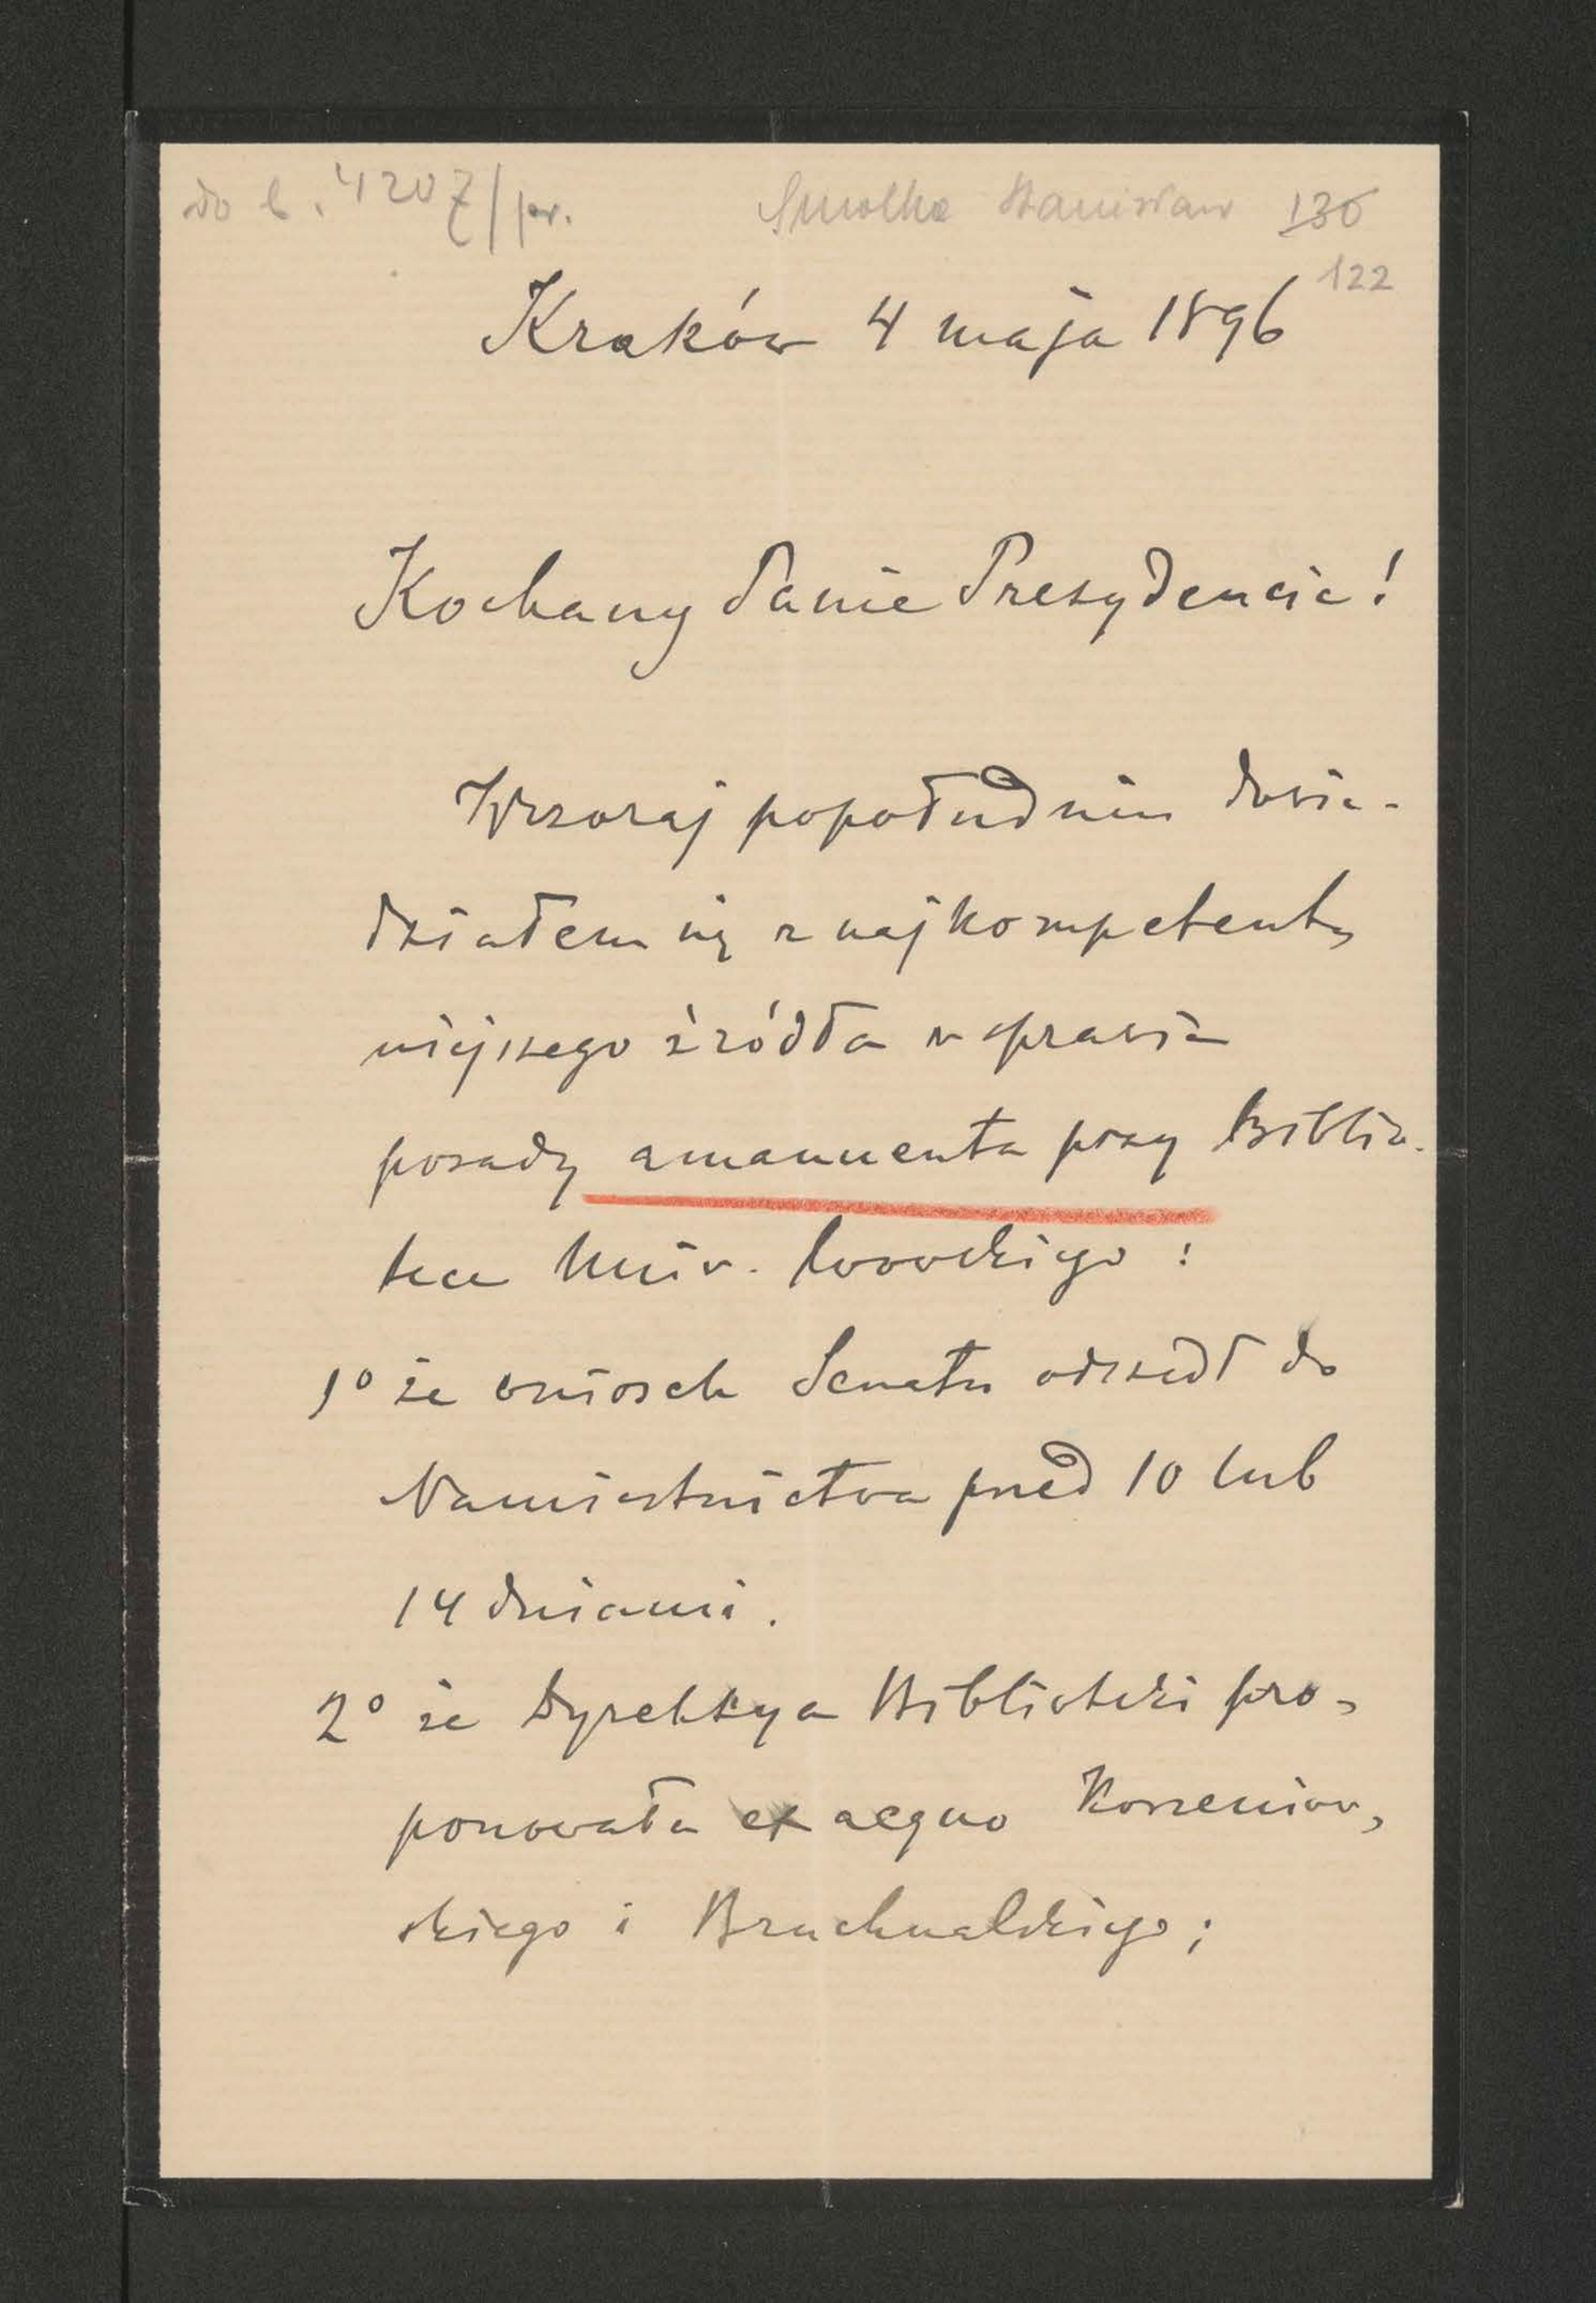 do l. 4207/pr.
Smolka Stanisław 136
122
Kraków 4 maja 1896
Kochany Panie Prezydencie!
Wczoraj popołudniu dowie-
działem się z najkompetent-
niejszego źródła w sprawie
posady amanuenta przy Biblio-
tece Univ. lwowskiego:
1° że wniosek Senatu odszedł do
Namiestnictwa przed 10 lub
14 dniami.
2° że Dyrekcya Biblioteki pro-
ponowała ex aequo Korzeniow-
skiego i Bruchnalskiego;